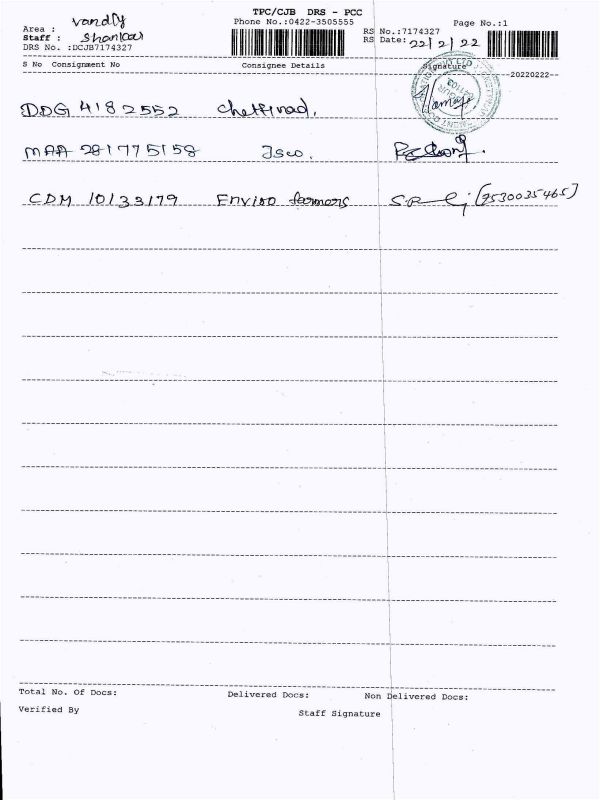 TPC/CJB DRS - PCC
Area : Vandly Phone No.:0422-3505555 Page No.:1
Staff : Shankar RS No.:7174327
DRS No. :DCJB7174327 RS Date: 22/2/22
S No Consignment No Consignee Details Signature
--20220222--
DDG 4182552 Chettinad.
MAA 281775158 Isco.
CDM 10133179 Enviro farmers (9530035465)
Total No. Of Docs: Delivered Docs: Non Delivered Docs:
Verified By Staff Signature